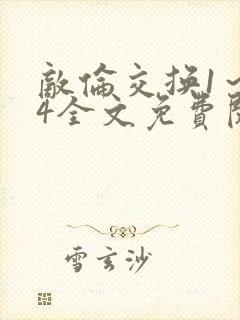 敵倫交换1~
4全文免費閱
雪玄沙